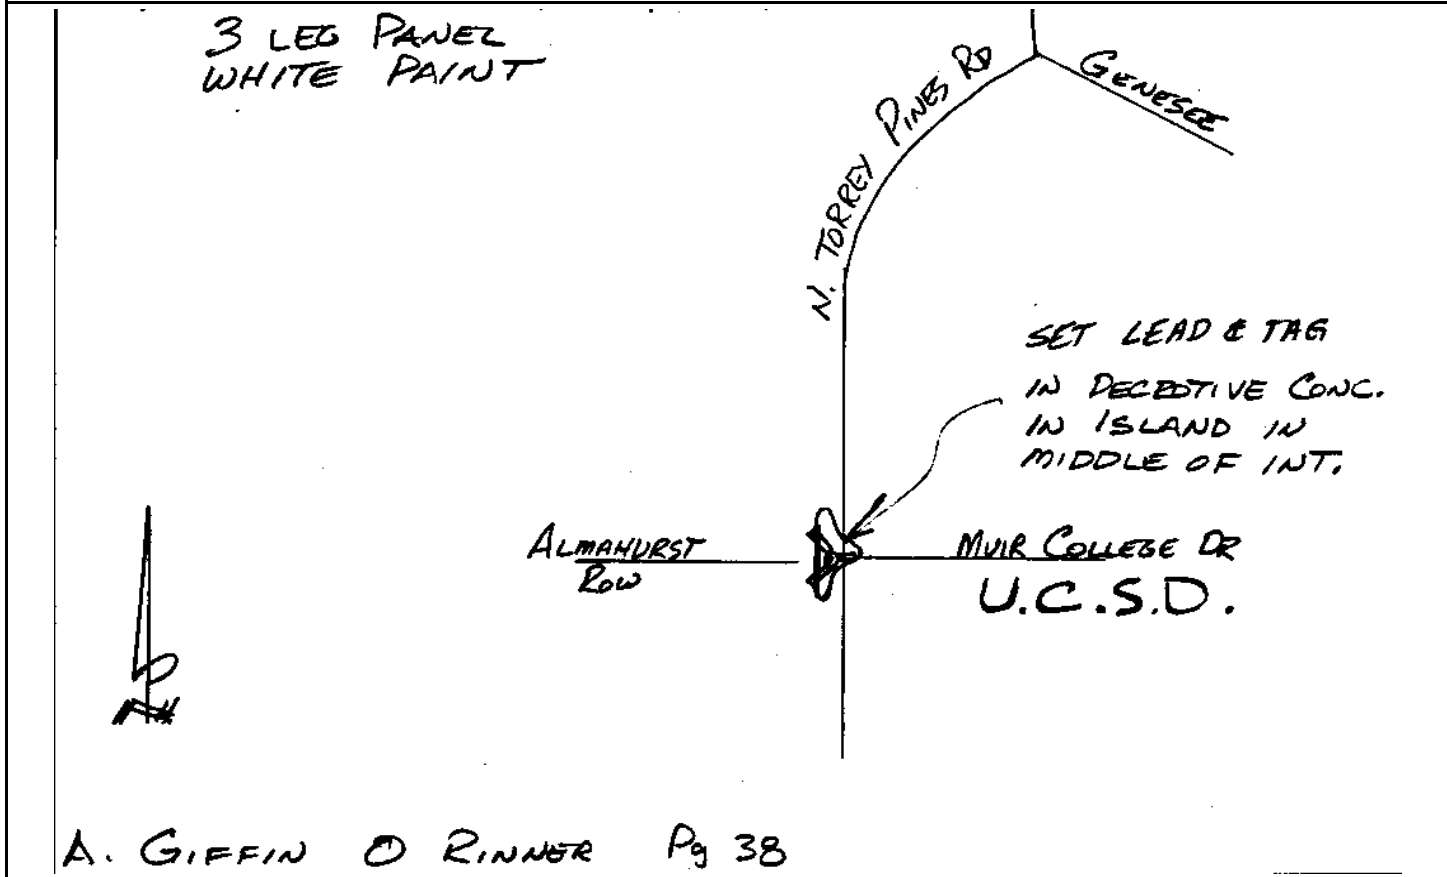 3 LEG PANEL
WHITE PAINT
N. TORREY PINES RD
GENESEE
SET LEAD & TAG
IN DECROTIVE CONC.
IN ISLAND IN
MIDDLE OF INT.
ALMAHURST
ROW
MUIR COLLEGE DR
U.C.S.D.
N
A. GIFFIN O RINNER Pg 38